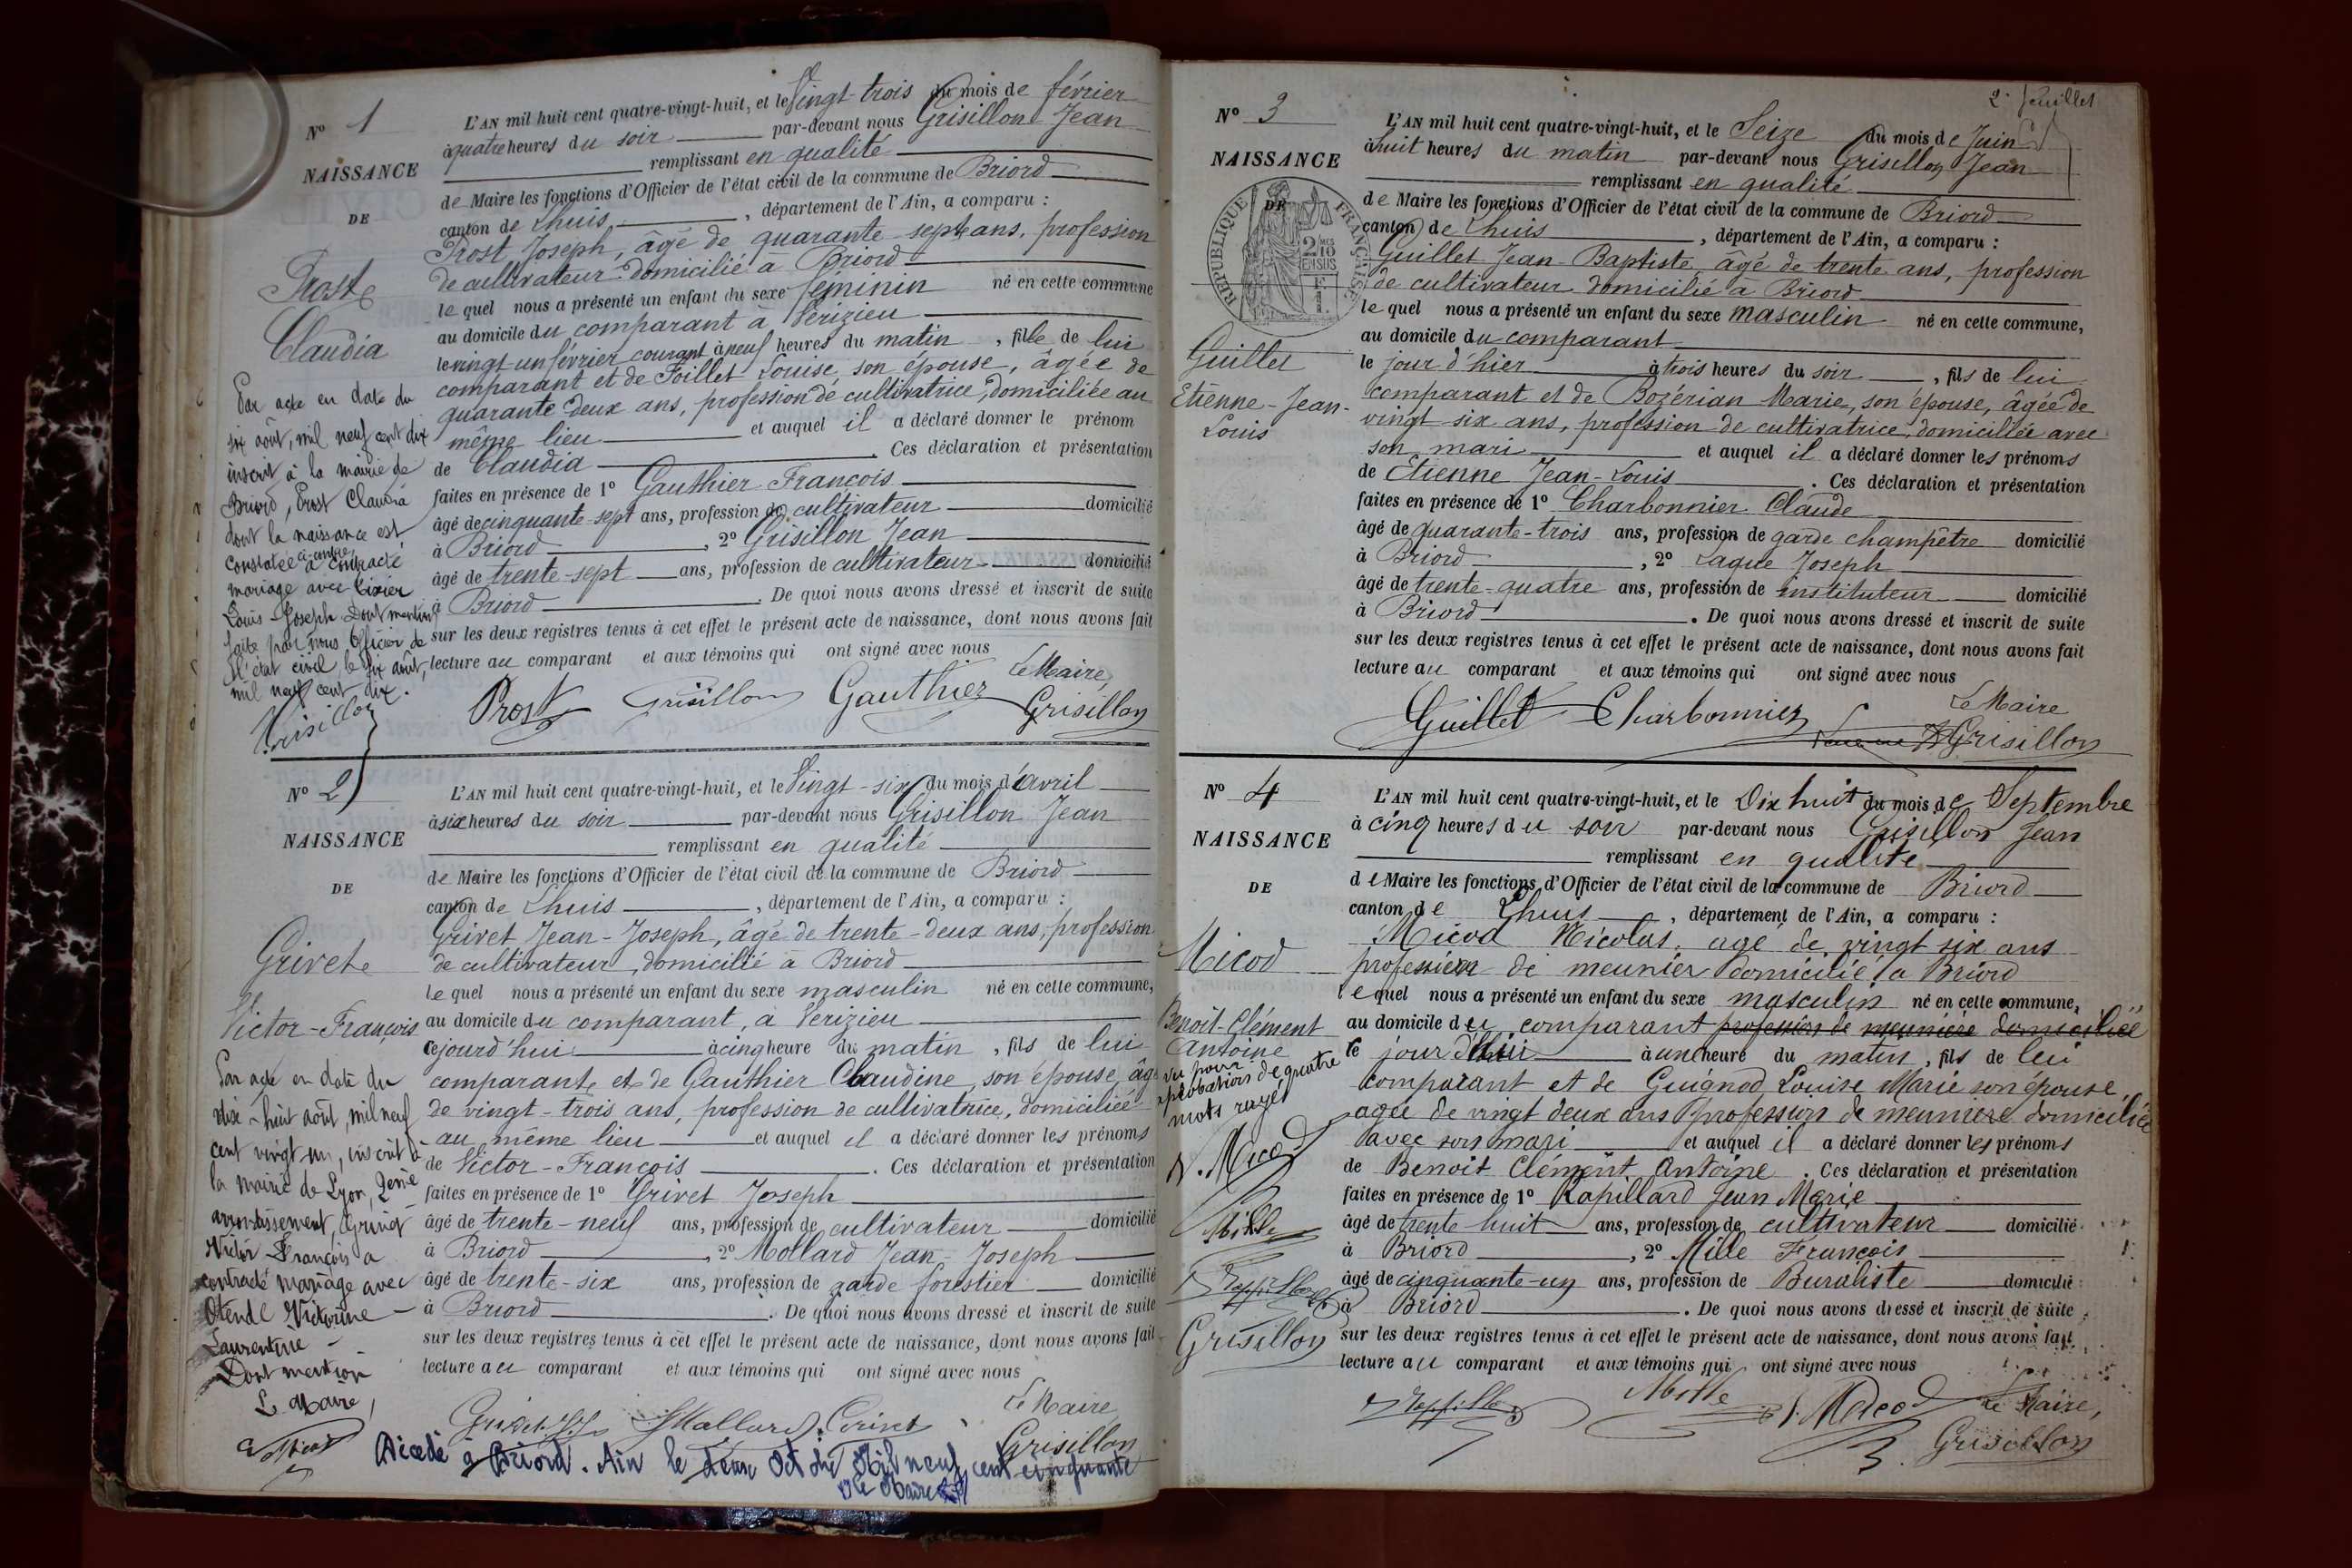 N° 1
NAISSANCE
DE
Prost
Claudia
Par acte en date du
six août, mil neuf cent dix
inscrit à la mairie de
Briord, Prost Claudia
dont la naissance est
constatée ci-contre,
a contracté
mariage avec Tixier
Louis Joseph. Dont mention
faite par nous Officier de
l'état civil, le six août,
mil neuf cent dix.
Grisillon
L'AN mil huit cent quatre-vingt-huit, et le Vingt trois du mois de février
à quatre heures du soir par-devant nous Grisillon Jean
remplissant en qualité
de Maire les fonctions d'Officier de l'état civil de la commune de Briord
canton de Lhuis, département de l'Ain, a comparu :
Prost Joseph, âgé de quarante sept ans, profession
de cultivateur domicilié à Briord
le quel nous a présenté un enfant du sexe féminin né en cette commune
au domicile du comparant à Vérizieu
le vingt-un février courant à neuf heures du matin, fille de lui
comparant et de Foillet Louise son épouse, âgée de
quarante deux ans, profession de cultivatrice, domiciliée au
même lieu et auquel il a déclaré donner le prénom
de Claudia. Ces déclaration et présentation
faites en présence de 1° Gauthier François
âgé de cinquante-sept ans, profession de cultivateur domicilié
à Briord, 2° Grisillon Jean
âgé de trente-sept ans, profession de cultivateur domicilié
à Briord. De quoi nous avons dressé et inscrit de suite
sur les deux registres tenus à cet effet le présent acte de naissance, dont nous avons fait
lecture au comparant et aux témoins qui ont signé avec nous
Le Maire,
Prost Grisillon Gauthier Grisillon
N° 2
NAISSANCE
DE
Grivet
Victor-François
Par acte en date du
dix-huit août, mil neuf
cent vingt-un, inscrit à
la mairie de Lyon, 2ème
arrondissement, Grivet
Victor François a
contracté mariage avec
Victorine
Laurentine
Dont mention
Le Maire,
L'AN mil huit cent quatre-vingt-huit, et le Vingt-six du mois d'avril
à six heures du soir par-devant nous Grisillon Jean
remplissant en qualité
de Maire les fonctions d'Officier de l'état civil de la commune de Briord
canton de Lhuis, département de l'Ain, a comparu :
Grivet Jean-Joseph, âgé de trente-deux ans, profession
de cultivateur, domicilié à Briord
le quel nous a présenté un enfant du sexe masculin né en cette commune,
au domicile du comparant, à Vérizieu
cejourd'hui à cinq heure du matin, fils de lui
comparant et de Gauthier Claudine, son épouse, âgé
de vingt-trois ans, profession de cultivatrice, domiciliée
au même lieu et auquel il a déclaré donner les prénoms
de Victor-François. Ces déclaration et présentation
faites en présence de 1° Grivet Joseph
âgé de trente-neuf ans, profession de cultivateur domicilié
à Briord, 2° Mollard Jean-Joseph
âgé de trente-six ans, profession de garde forestier domicilié
à Briord. De quoi nous avons dressé et inscrit de suite
sur les deux registres tenus à cet effet le présent acte de naissance, dont nous avons fait
lecture au comparant et aux témoins qui ont signé avec nous
Le Maire
Grivet J.J. Mollard Grivet Grisillon
Décédé à Briord. Ain le deux Octobre Mil neuf cent cinquante
Le Maire
2e feuillet
N° 3
NAISSANCE
DE
RÉPUBLIQUE FRANÇAISE
Guillet
Etienne-Jean-
Louis
L'AN mil huit cent quatre-vingt-huit, et le Seize du mois de Juin
à huit heures du matin par-devant nous Grisillon Jean
remplissant en qualité
de Maire les fonctions d'Officier de l'état civil de la commune de Briord
canton de Lhuis, département de l'Ain, a comparu :
Guillet Jean-Baptiste âgé de trente ans, profession
de cultivateur domicilié à Briord
le quel nous a présenté un enfant du sexe masculin né en cette commune,
au domicile du comparant
le jour d'hier à trois heures du soir, fils de lui
comparant et de Bozérian Marie, son épouse, âgée de
vingt six ans, profession de cultivatrice, domiciliée avec
son mari et auquel il a déclaré donner les prénoms
de Etienne Jean-Louis. Ces déclaration et présentation
faites en présence de 1° Charbonnier Claude
âgé de quarante-trois ans, profession de garde champêtre domicilié
à Briord, 2° Lague Joseph
âgé de trente-quatre ans, profession de instituteur domicilié
à Briord. De quoi nous avons dressé et inscrit de suite
sur les deux registres tenus à cet effet le présent acte de naissance, dont nous avons fait
lecture au comparant et aux témoins qui ont signé avec nous
Le Maire
Guillet Charbonnier Grisillon
N° 4
NAISSANCE
DE
Micod
Benoit-Clément
Antoine
vu pour
approbation de quatre
mots rayés
N. Micod
Mille
Grisillon
L'AN mil huit cent quatre-vingt-huit, et le Dix huit du mois de Septembre
à cinq heures du soir par-devant nous Grisillon Jean
remplissant en qualité
de Maire les fonctions d'Officier de l'état civil de la commune de Briord
canton de Lhuis, département de l'Ain, a comparu :
Micod Nicolas, agé de vingt six ans
profession de meunier domicilié à Briord
le quel nous a présenté un enfant du sexe masculin né en cette commune,
au domicile du comparant profession de meunière domiciliée
le jour d'hui à une heure du matin, fils de lui
comparant et de Guignod Louise Marie son épouse,
agée de vingt deux ans profession de meuniere domiciliée
avec son mari et auquel il a déclaré donner les prénoms
de Benoit Clément Antoine. Ces déclaration et présentation
faites en présence de 1° Rapillard Jean Marie
âgé de trente huit ans, profession de cultivateur domicilié
à Briord, 2° Mille François
âgé de cinquante-un ans, profession de Buraliste domicilié
à Briord. De quoi nous avons dressé et inscrit de suite
sur les deux registres tenus à cet effet le présent acte de naissance, dont nous avons fait
lecture au comparant et aux témoins qui ont signé avec nous
Mille N. Micod Le Maire,
Grisillon